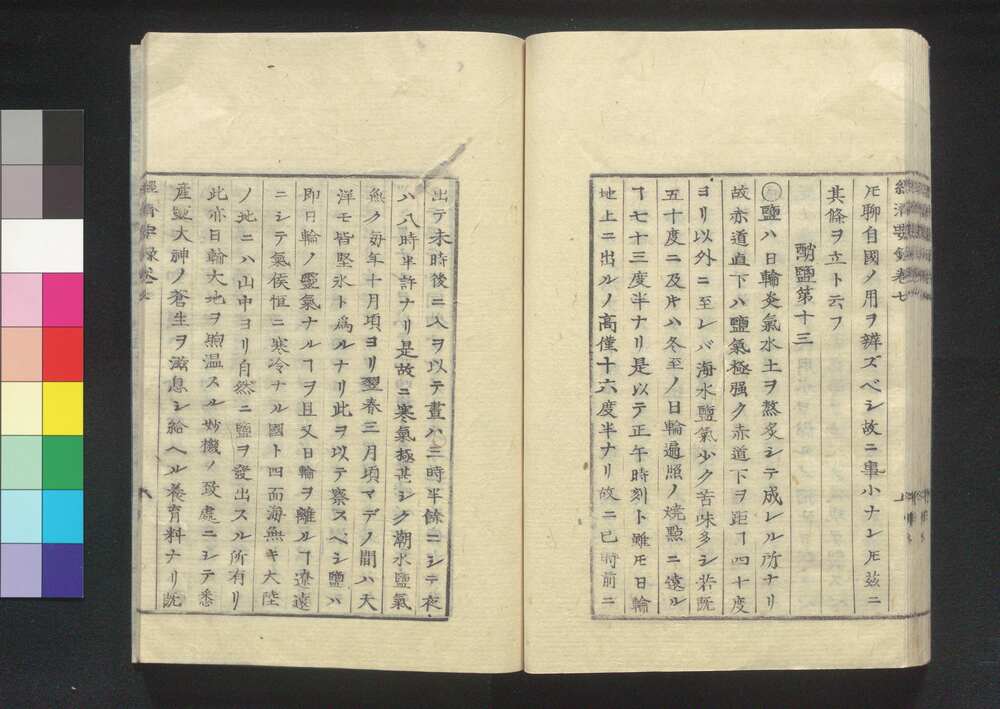 經濟要錄卷七
ㇳモ聊自國ノ用ヲ辨ズベシ故ニ事小ナレㇳモ玆ニ
其條ヲ立ト云フ
硝鹽第十三
鹽ハ日輪炎氣水土ヲ熬炙シテ成レル所ナリ
故赤道直下ハ鹽氣極强ク赤道下ヲ距ヿ四十度
ヨリ以外ニ至レバ海水鹽氣少ク苦味多シ若既
五十度ニ及片ハ冬至ノ日輪遍照ノ燒點ニ遠ル
ヿ七十三度半ナリ是以テ正午時刻ト雖モ日輪
地上ニ出ルノ高僅十六度半ナリ故ニ巳時前ニ
出テ未時後ニ入ヲ以テ晝ハ三時半餘ニシテ夜
ハ八時半許ナリ是故ニ寒氣極甚シク潮水鹽氣
無ク每年十月頃ヨリ翌春三月頃マデノ間ハ大
洋モ皆堅氷ト爲ルナリ此ヲ以テ察スベシ鹽ハ
即日輪ノ靈氣ナルヿヲ且又日輪ヲ離ルヿ遼遠
ニシテ氣候恒ニ寒冷ナル國ト四面海無キ大陸
ノ地ニハ山中ヨリ自然ニ鹽ヲ發出スル所有リ
此亦日輪大地ヲ煦温スル妙機ノ致處ニシテ悉
產靈大神ノ蒼生ヲ滋息シ給ヘル養育料ナリ既
經濟要錄卷七